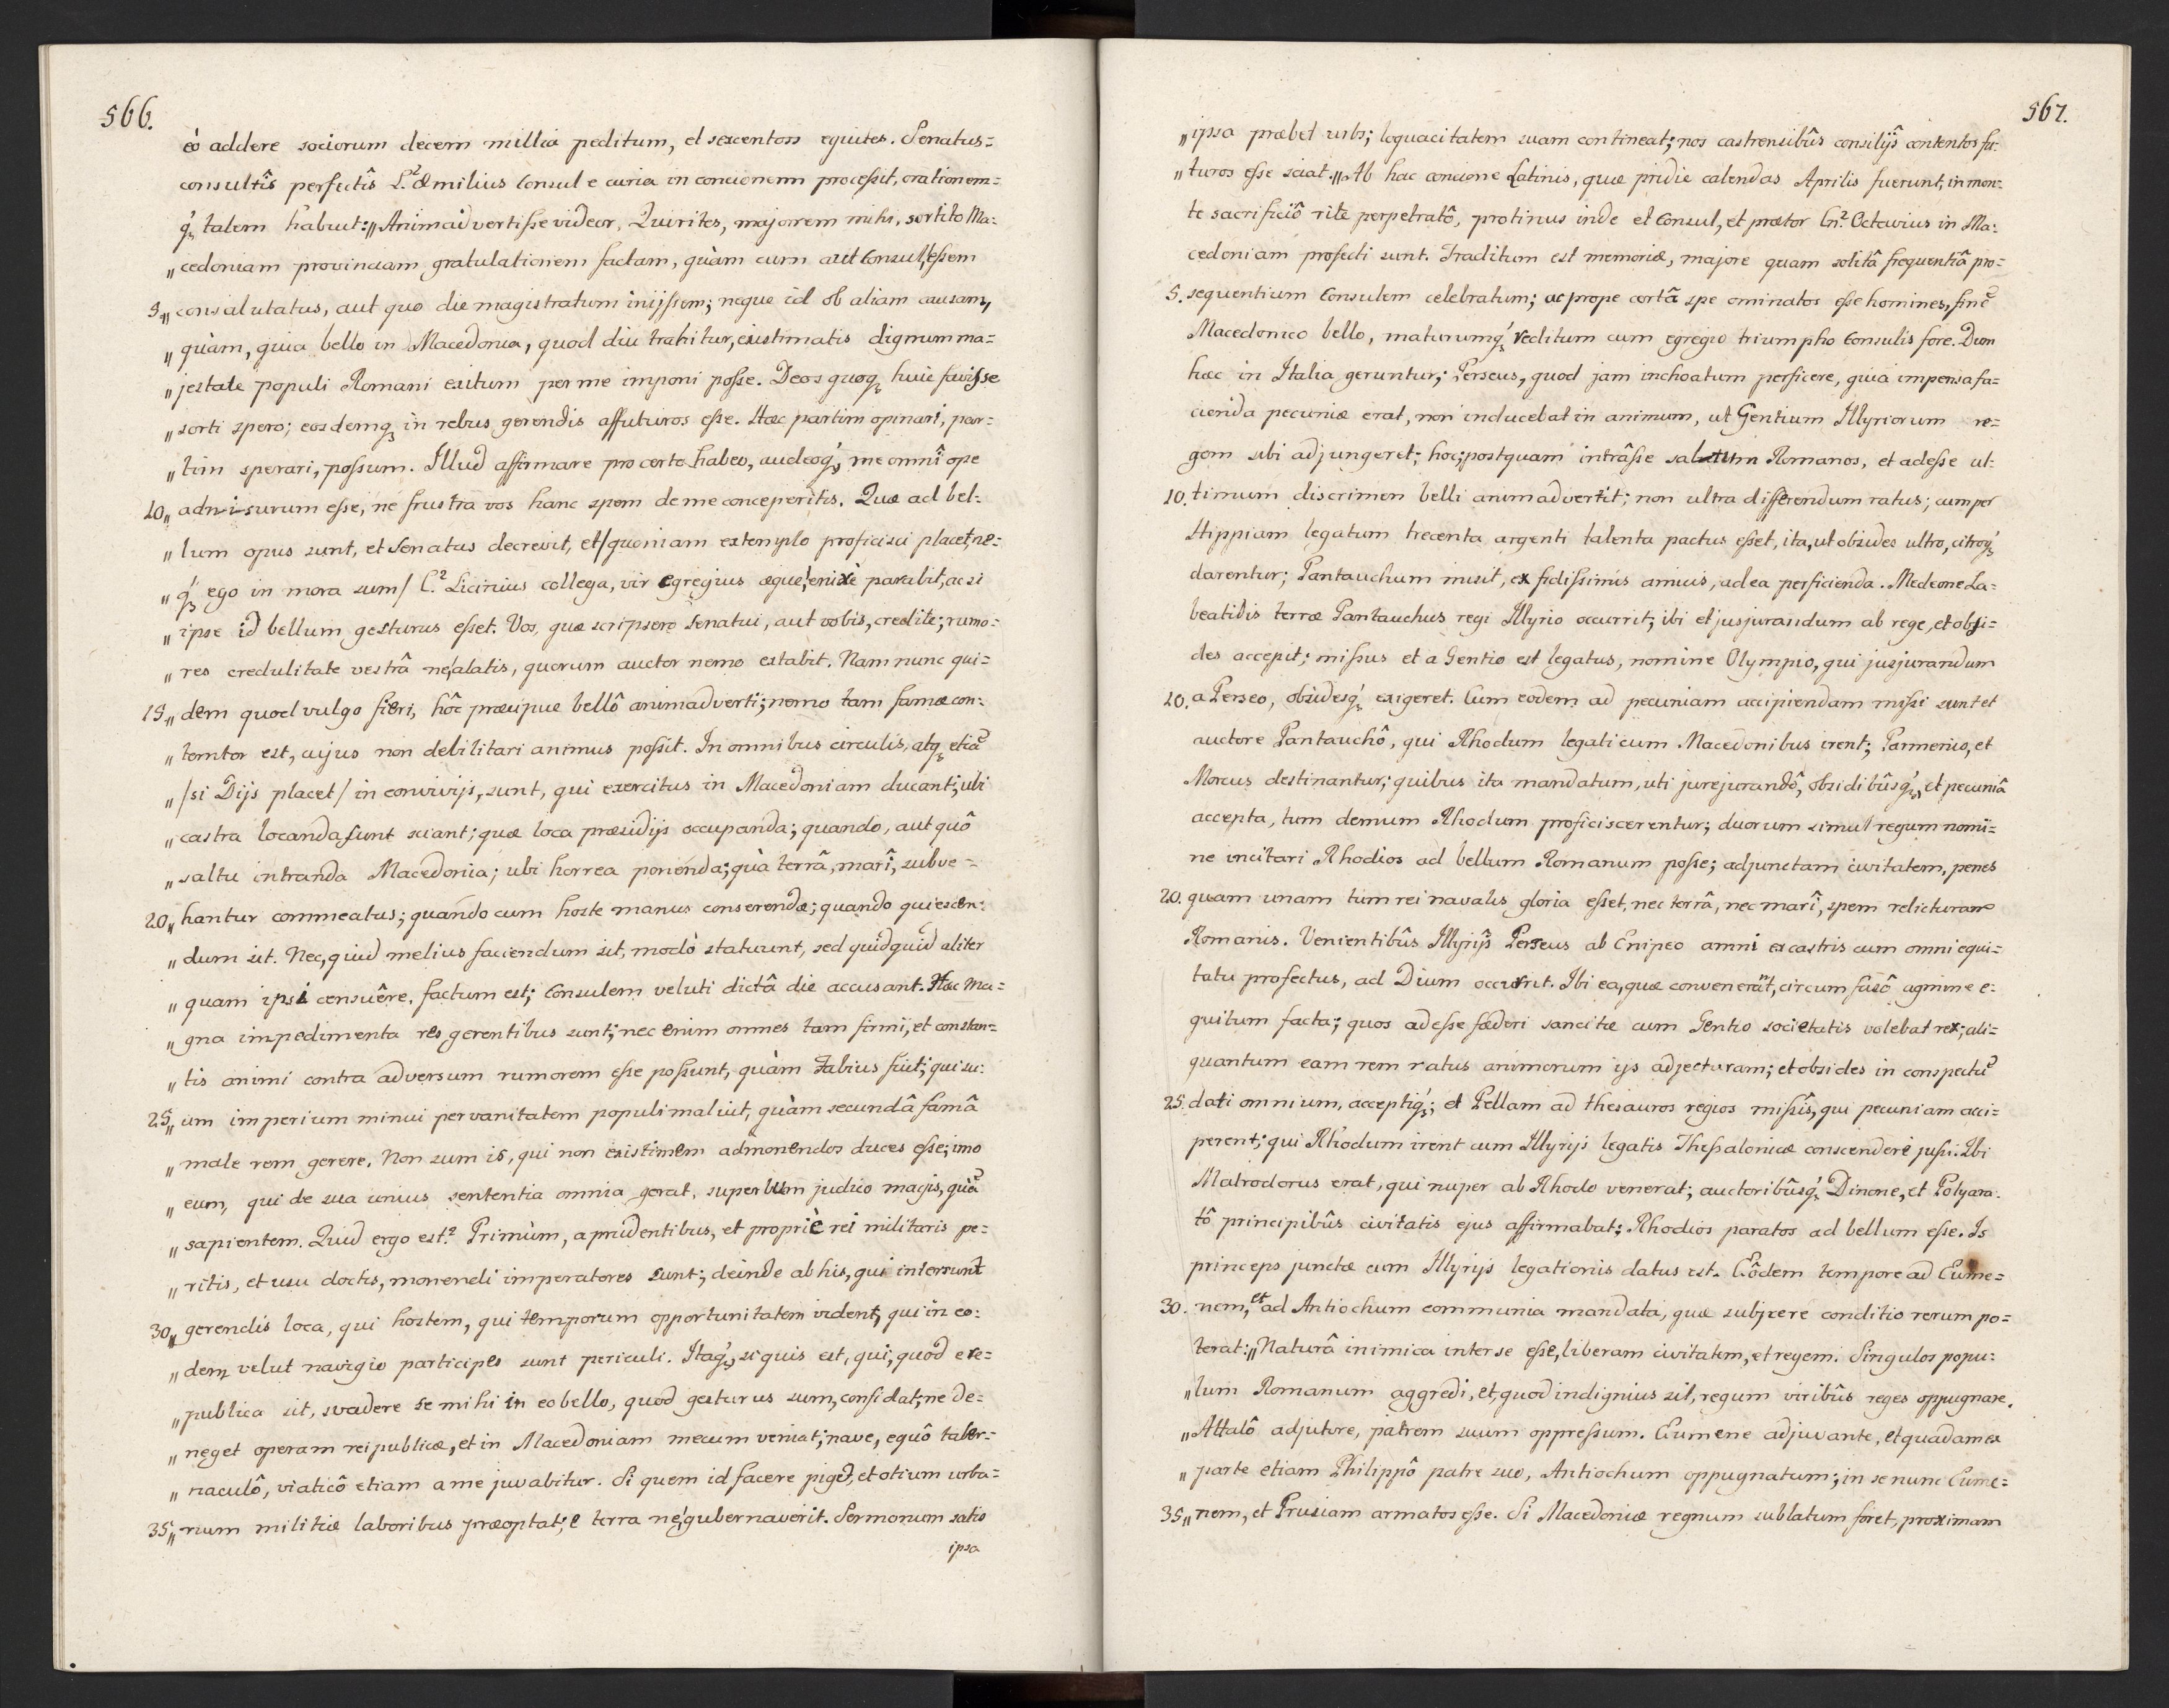 566.
eò addere sociorum decem millia peditum, et sexcentos equites. Senatus=
consultîs perfectîs L.² Æmilius Consul e curia in concionem processit, orationem=
q́ꝫ talem habuit:„ Animadvertisse videor, Quirites, majorem mihi, sortito Ma=
„ cedoniam provinciam gratulationem factam, quàm cum aut Consul, essem
5.„ consalutatus, aut quo die magistratum inijssem; neque id ob aliam causam,
„ quàm, quia bello in Macedonia, quod diu trahitur, existimatis dignum ma=
„ jestate populi Romani exitum per me imponi posse. Deos quoqꝫ huic favisse
„ sorti spero; eosdemqꝫ in rebus gerendis affuturos esse. Hæc partim opinari, par=
„ tim sperari, possum. Illud affirmare pro certo habeo, audeoq́ꝫ, me omnî ope
10„ adnisurum esse, ne frustra vos hanc spem de me conceperitis. Quæ ad bel=
„ lum opus sunt, et Senatus decrevit, et/quoniam extemplo proficisci placet, ne=
„ q́ꝫ ego in mora sum/ C.² Licinius collega, vir egregius æque, enixè parabit, ac si
„ ipse id bellum gesturus esset. Vos, quæ scripsero Senatui, aut vobis, credite; rumo=
„ res credulitate vestrâ ne, alatis, quorum auctor nemo extabit. Nam nunc qui=
15„ dem quod vulgo fieri, hôc præcipue bellô animadverti; nemo tam famæ con=
„ temtor est, cujus non debilitari animus possit. In omnibus circulis, atqꝫ etiã
„ /si Dijs placet/ in convivijs, sunt, qui exercitus in Macedoniam ducant; ubi
„ castra locanda sunt sciant; quæ loca præsidijs occupanda; quando, aut quô
„ saltu intranda Macedonia; ubi horrea ponenda; quà terrâ, marî, subve=
20„ hantur commeatus; quando cum hoste manus conserendæ; quando quiescen=
„ dum sit. Nec, quid melius faciendum sit, modò statuunt, sed quidquid aliter
„ quam ipsi censuêre, factum est; Consulem veluti dictâ die accusant. Hæc ma=
„ gna impedimenta res gerentibus sunt; nec enim omnes tam firmi, et constan=
„ tis animi contra adversum rumorem esse possunt, quàm Fabius fuit; qui su=
25„ um imperium minui per vanitatem populi maluit, quàm secundâ famâ
„ male rem gerere. Non sum is, qui non existimem admonendos duces esse; imo
„ eum, qui de sua unius sententia omnia gerat, superbum judico magis, quã
„ sapientem. Quid ergo est? Primùm, a prudentibus, et propriè rei militaris pe=
„ ritis, et usu doctis, monendi imperatores sunt; deinde ab his, qui intersunt
30„ gerendis loca, qui hostem, qui temporum opportunitatem vident, qui in eo=
„ dem velut navigio participes sunt periculi. Itaq́ꝫ, si quis est, qui, quod e re=
„ publica sit, svadere se mihi in eo bello, quod gesturus sum, confidat; ne de=
„ neget operam reipublicæ, et in Macedoniam mecum veniat; nave, equô taber=
„ naculô, viaticô etiam a me juvabitur. Si quem id facere piget, et otium urba=
35„ num militiæ laboribus præoptat; e terra ne, gubernaverit. Sermonum satis
ipsa
567.
„ ipsa præbet urbs; loquacitatem suam contineat; nos castrensibûs consilijs contentos fu=
„ turos esse sciat.„ Ab hac concione Latinis, quæ pridie calendas Aprilis fuerunt, in mon=
te sacrificiô rite perpetratô, protinus inde et Consul, et prætor Cn.² Octavius in Ma=
cedoniam profecti sunt. Traditum est memoriæ, majore quam solitâ frequentiâ pro=
5. sequentium Consulem celebratum; ac prope certâ spe ominatos esse homines, finẽ
Macedonico bello, maturumq́ꝫ reditum cum egregio triumpho Consulis fore. Dum
hæc in Italia geruntur; Perseus, quod jam inchoatum perficere, quia impensa fa=
cienda pecuniæ erat, non inducebat in animum, ut Gentium Illyriorum re=
gem sibi adjungeret; hoc; postquam intrâsse saltum Romanos, et adesse ul=
10. timum discrimen belli animadvertit; non ultra differendum ratus; cum per
Hippiam legatum trecenta argenti talenta pactus esset, ita, ut obsides ultro, citroq́ꝫ
darentur; Pantauchum misit, ex fidissimis amicis, ad ea perficienda. Medeone La=
beatidis terræ Pantauchus regi Illyrio occurrit; ibi et jusjurandum ab rege, et obsi=
des accepit; missus et a Gentio est legatus, nomine Olympio, qui jusjurandum
20. a Perseo, obsidesq́ꝫ exigeret. Cum eodem ad pecuniam accipiendam missi sunt et
auctore Pantauchô, qui Rhodum legati cum Macedonibus irent; Parmenio, et
Morcus destinantur; quibus ita mandatum, uti jurejurandô, obsidibûsq́ꝫ, et pecuniâ
accepta, tum demum Rhodum proficiscerentur; duorum simul regum nomi=
ne incitari Rhodios ad bellum Romanum posse; adjunctam civitatem, penes
20. quam unam tum rei navalis gloria esset, nec terrâ, nec marî, spem relicturam
Romanis. Venientibûs Illyrijs Perseus ab Enipeo amni ex castris cum omni equi=
tatu profectus, ad Dium occurrit. Ibi ea, quæ convenerãt, circumfusô agmine e=
quitum facta; quos adesse fœderi sancitæ cum Gentio societatis volebat rex; ali=
quantum eam rem ratus animorum ijs adjecturam; et obsides in conspectu
25. dati omnium, acceptiq́ꝫ; et Pellam ad thesauros regios missîs, qui pecuniam acci=
perent; qui Rhodum irent cum Illyrijs legatis Thessalonicæ conscendere jussi. Ibi
Matrodorus erat, qui nuper ab Rhodo venerat; auctoribûsq́ꝫ Dinone, et Polyara=
tô principibûs civitatis ejus affirmabat; Rhodios paratos ad bellum esse. Is
princeps junctæ cum Illyrijs legationis datus est. Eôdem tempore ad Eume=
30. nem, et ad Antiochum communia mandata, quæ subjicere conditio rerum po=
terat:„ Naturâ inimica inter se esse, liberam civitatem, et regem. Singulos popu=
„ lum Romanum aggredi, et, quod indignius sit, regum viribûs reges oppugnare.
„ Attalô adjutore, patrem suum oppressum. Eumene adjuvante, et quadam ex
„ parte etiam Philippô patre suo, Antiochum oppugnatum; in se nunc Eume=
35„ nem, et Prusiam armatos esse. Si Macedoniæ regnum sublatum foret, proximam